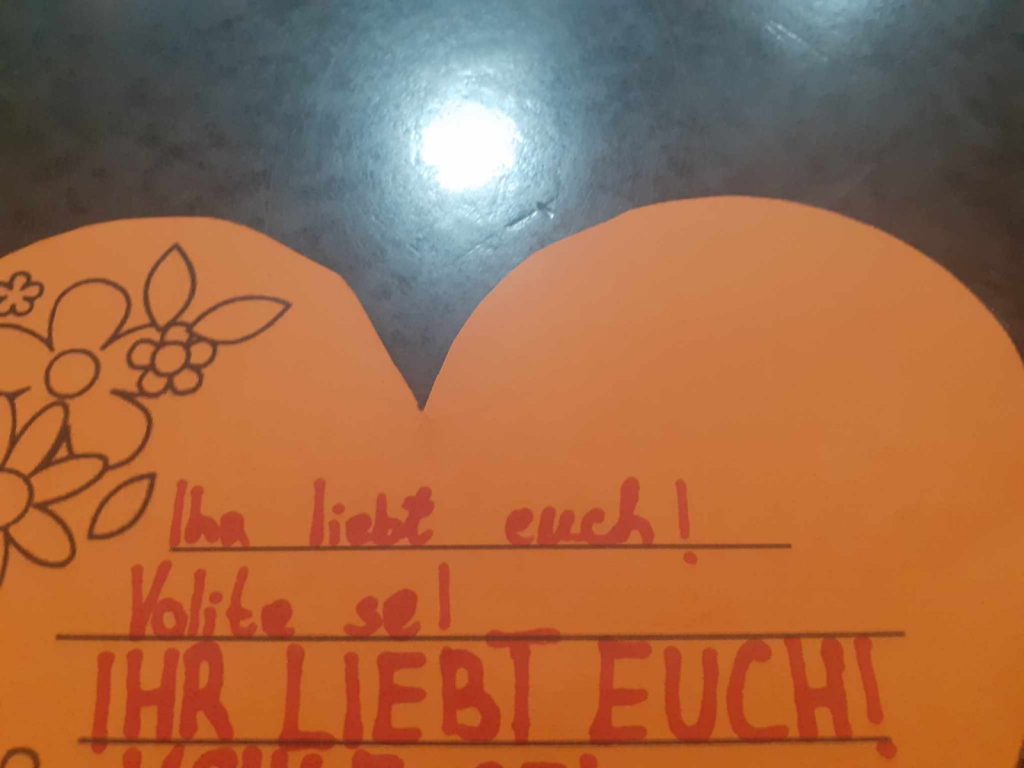 Ihr liebt euch!
Volite se!
IHR LIEBT EUCH!